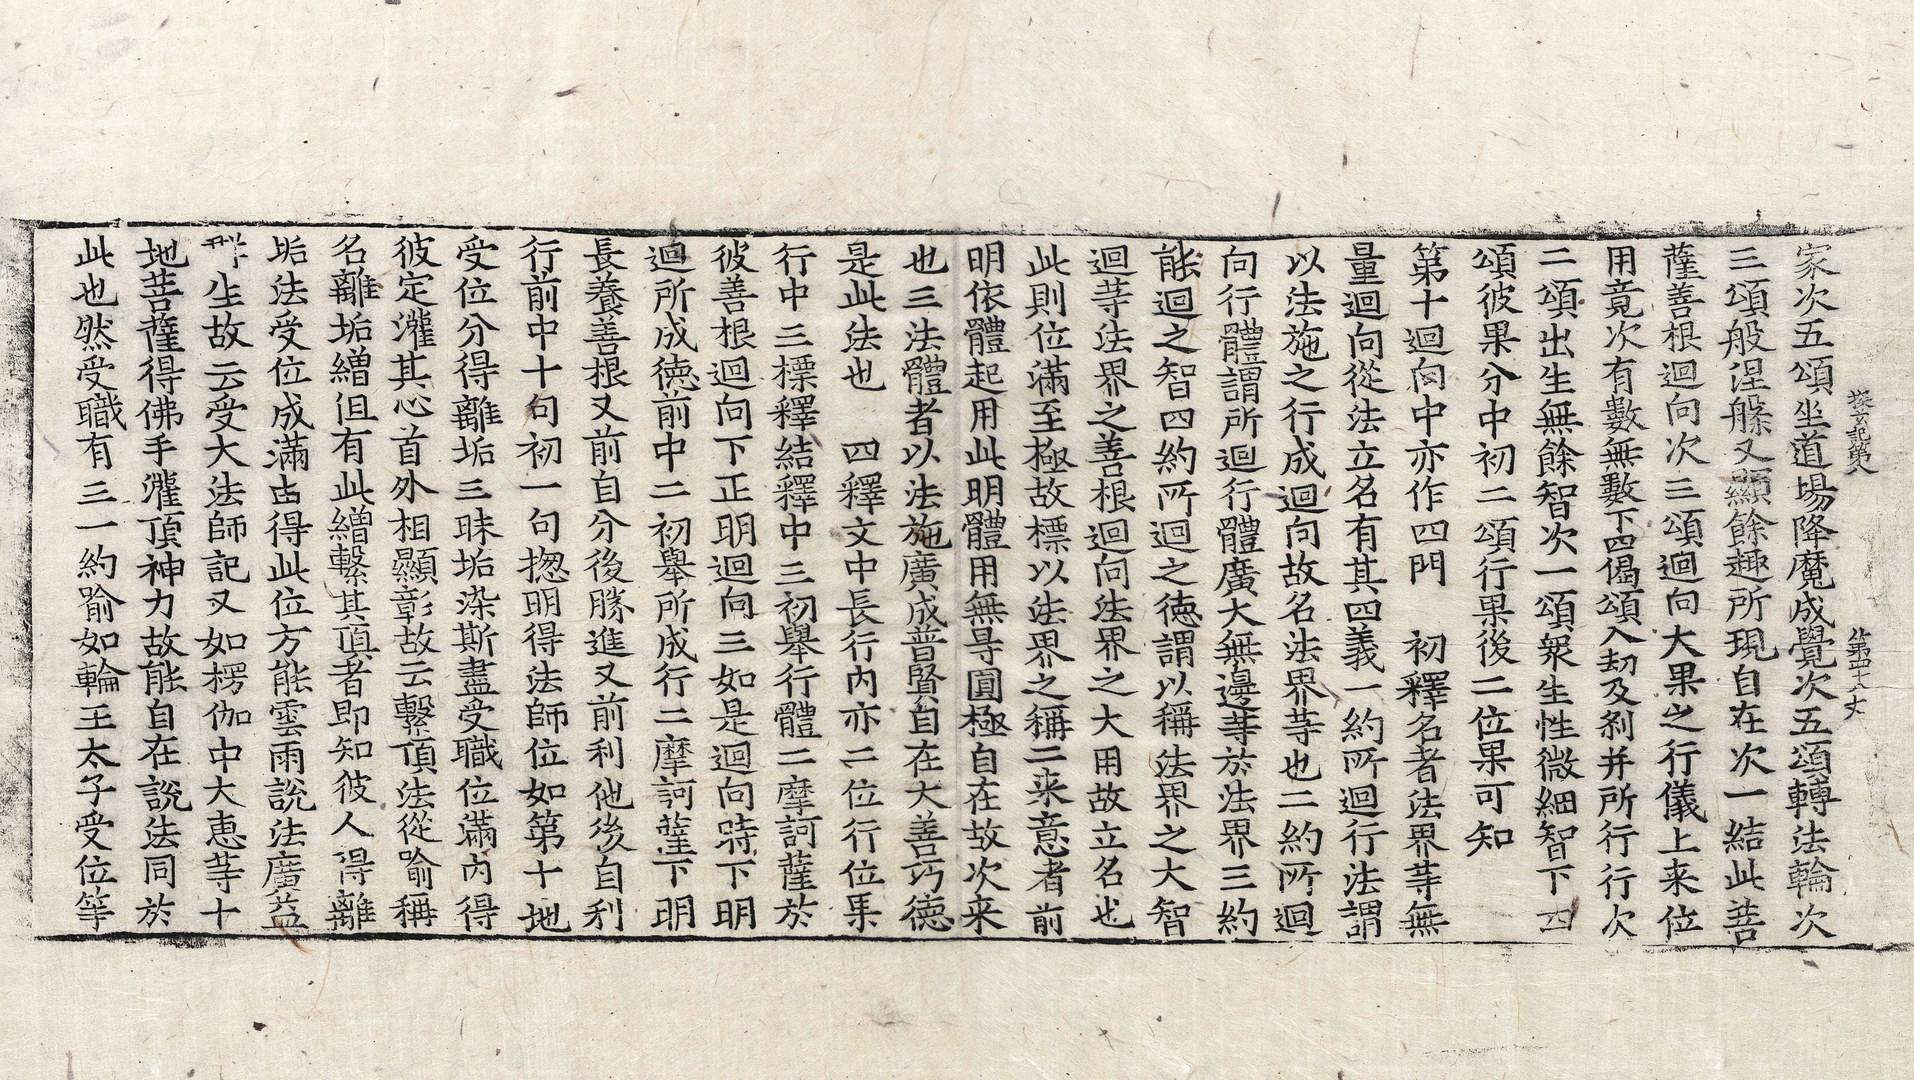 家次五頌坐道場降魔成覺次五頌轉法輪次
三頌般涅槃又顯餘趣所現自在次一結此菩
薩善根迴向次三頌迴向大果之行儀上来位
用竟次有數無數下四偈頌入劫及刹并所行行次
二頌出生無餘智次一頌衆生性微細智下四
頌彼果分中初二頌行果後二位果可知
第十迴向中亦作四門　初釋名者法界等無
量迴向從法立名有其四義一約所迴行法謂
以法施之行成迴向故名法界等也二約所迴
向行體謂所迴行體廣大無邊等於法界三約
能迴之智四約所迴之德謂以稱法界之大智
迴等法界之善根迴向法界之大用故立名也
此則位滿至極故標以法界之稱二来意者前
明依體起用此明體用無㝵圓極自在故次来
也三法體者以法施廣成普賢自在大善巧德
是此法也　四釋文中長行內亦二位行位果
行中三標釋結釋中三初舉行體二摩訶薩於
彼善根迴向下正明迴向三如是迴向時下明
迴所成德前中二初舉所成行二摩訶薩下明
長養善根又前自分後勝進又前利他後自利
行前中十句初一句揔明得法師位如第十地
受位分得離垢三昧垢染斯盡受職位滿內得
彼定灌其心首外相顯彰故云繫頂法從喻稱
名離垢繒但有此繒繫其頂者即知彼人得離
垢法受位成滿古得此位方能雲雨說法廣益
群生故云受大法師記又如楞伽中大惠等十
地菩薩得佛手灌頂神力故能自在說法同於
此也然受職有三一約喻如輪王太子受位等